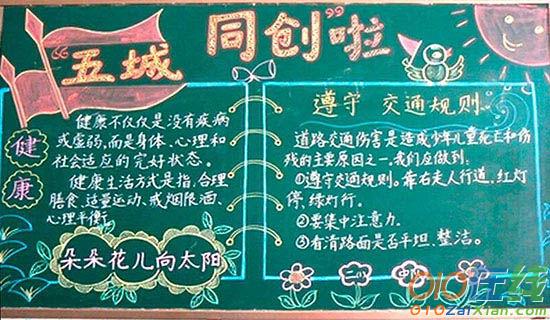 “五城同创”啦
健康
健康不仅仅是没有疾病
或虚弱,而是身体、心理和
社会适应的完好状态。
健康生活方式是指,合理
膳食、适量运动、戒烟限酒、
心理平衡。
朵朵花儿向太阳
遵守 交通规则
道路交通伤害是造成少年儿童死亡和伤
残的主要原因之一,我们应做到:
①遵守交通规则。靠右走人行道,红灯
停,绿灯行。
②要集中注意力。
③看清路面是否平坦、整洁。
二(1)中队
010在线
010zaixian.com